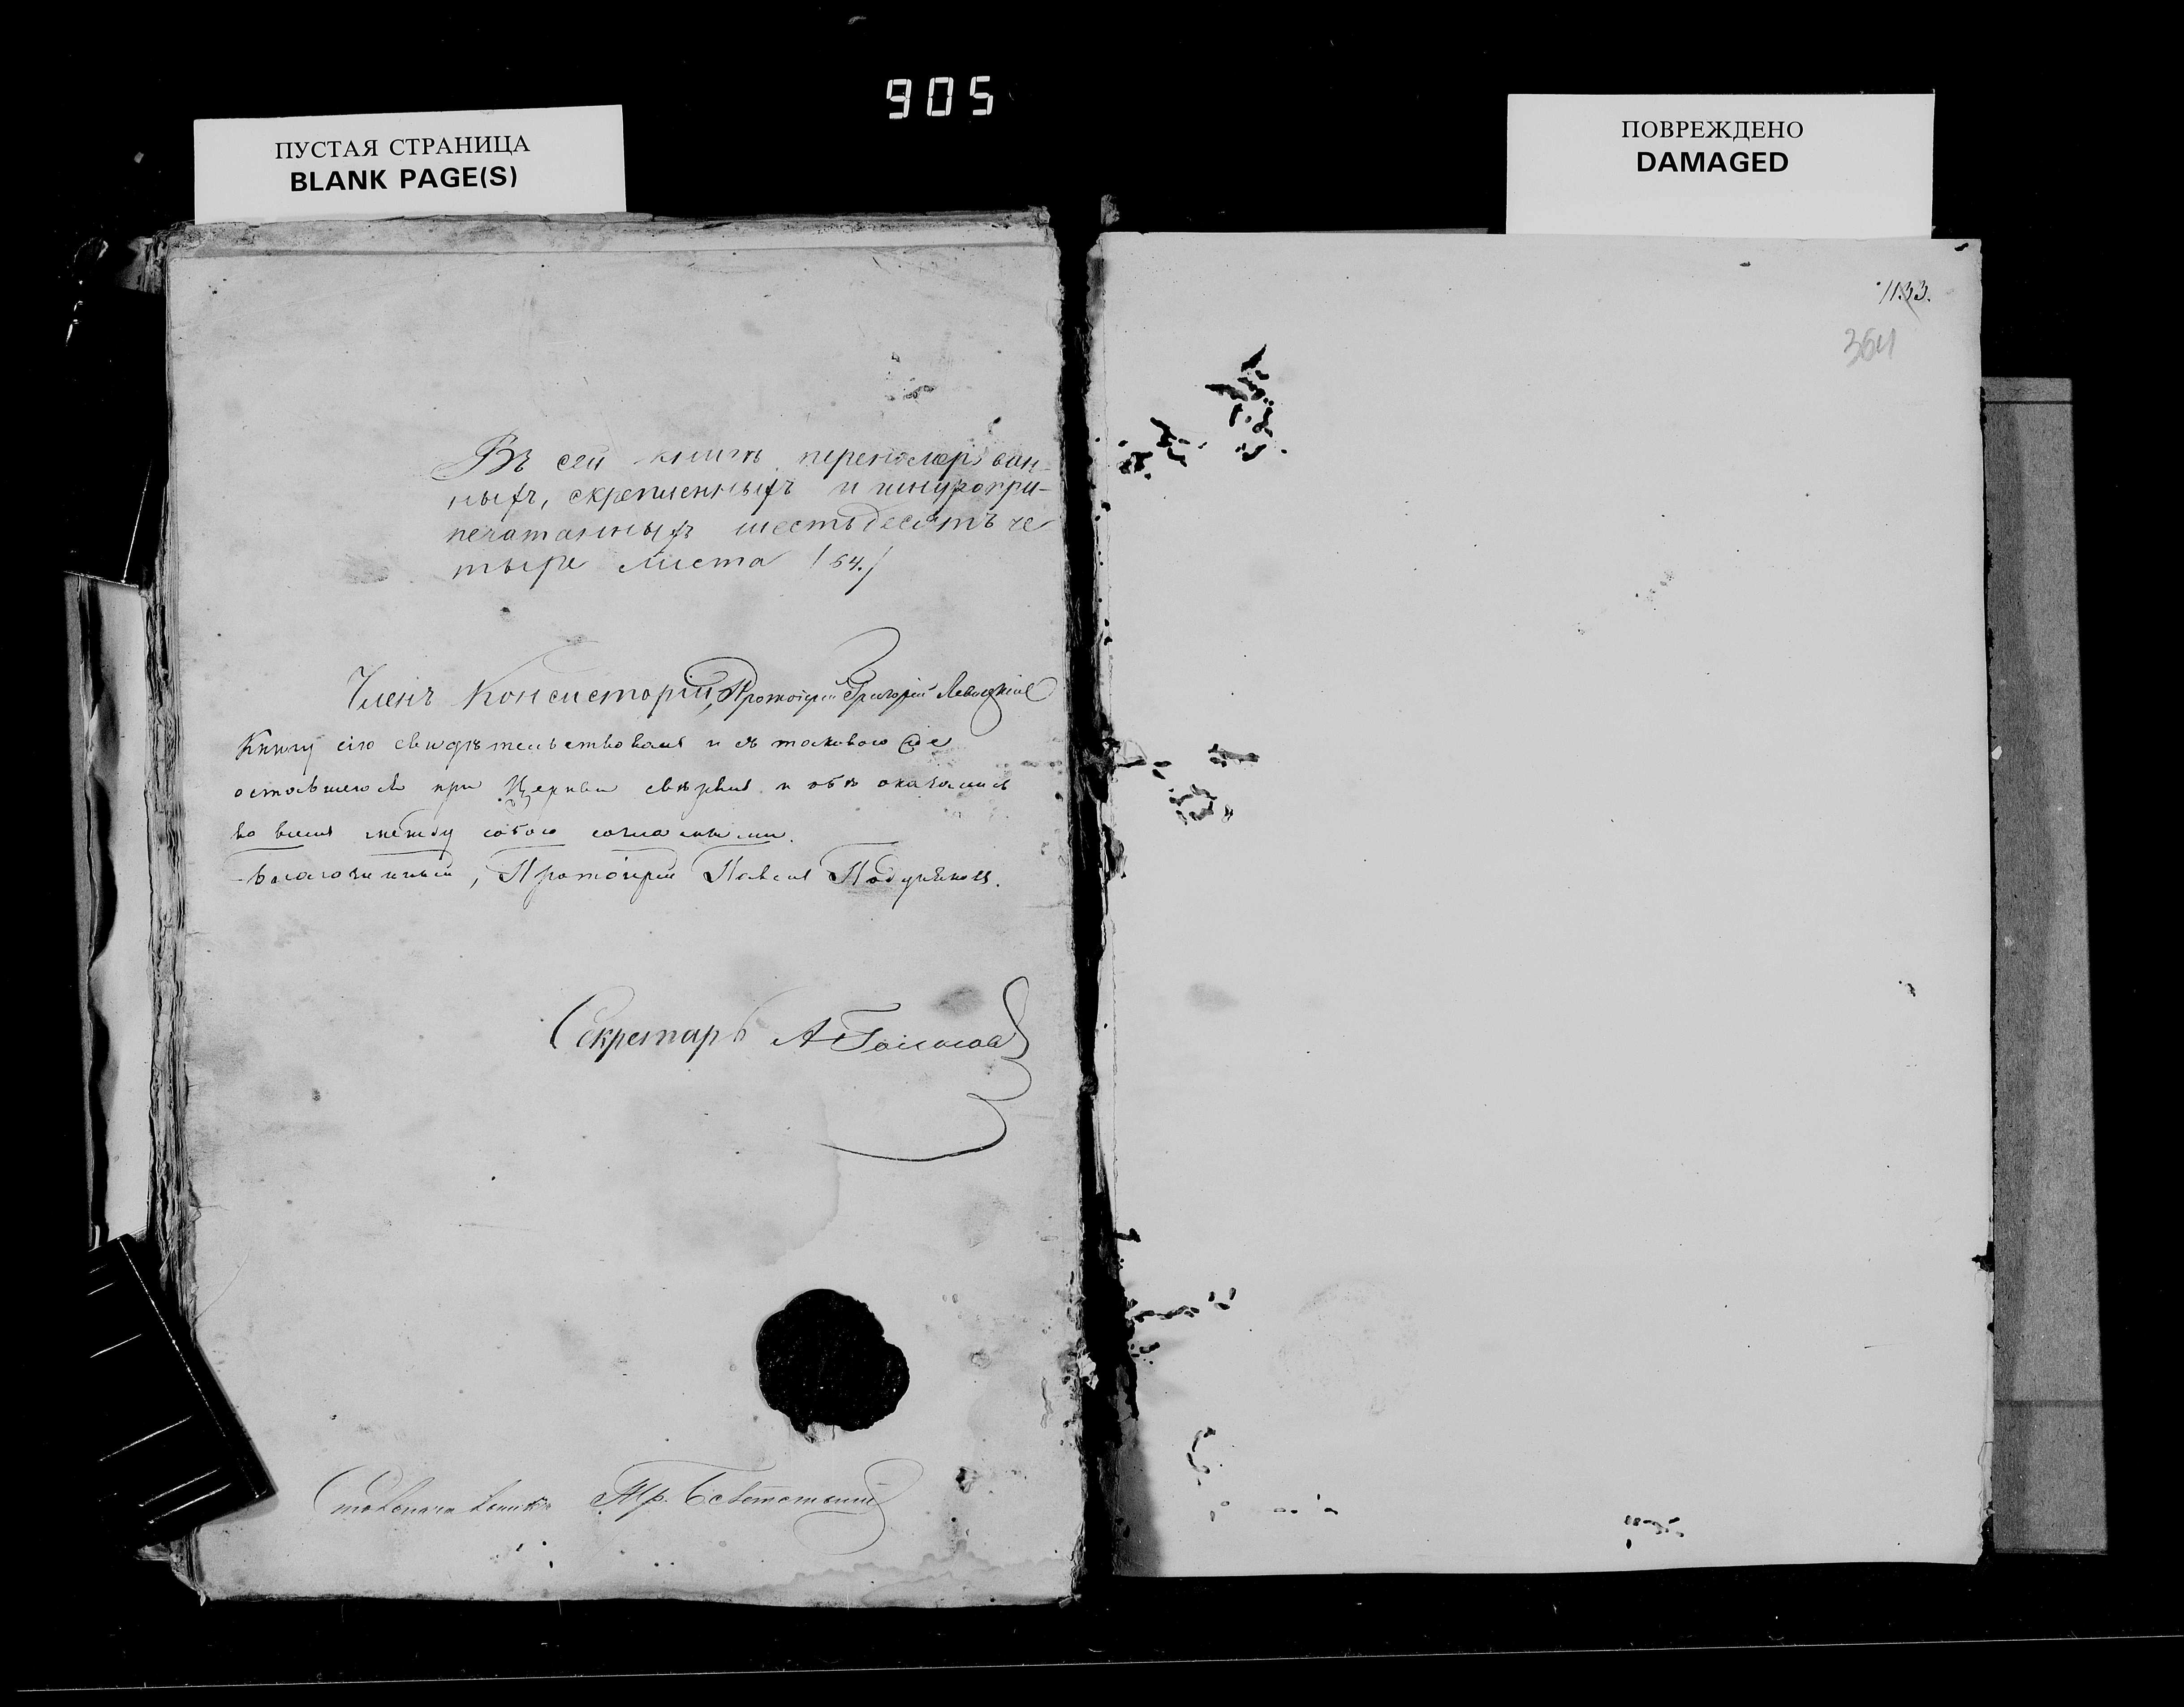 905
ПУСТАЯ СТРАНИЦА
BLANK PAGE(S)
ПОВРЕЖДЕНО
DAMAGED
1133.
364
Въ сей книгѣ перенумерован-
ныхъ, скрепленныхъ и шнуропри-
печатанныхъ шестьдесятъ че
тыре листа (64.)
Членъ Консисторіи, Протоіерей Григорій Левицкій
Книгу сію свидѣтельствовалъ и съ таковою же
оставшеюся при Церкви свѣрялъ и обѣ оказались
во всемъ между собою согласными.
Благочинный, Протоіерей Павелъ
Секретарь А.
Столоначальникъ